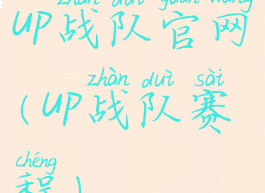 zhàn duì guān wǎng
UP战队官网
zhàn duì sài
(UP战队赛
chéng
程)